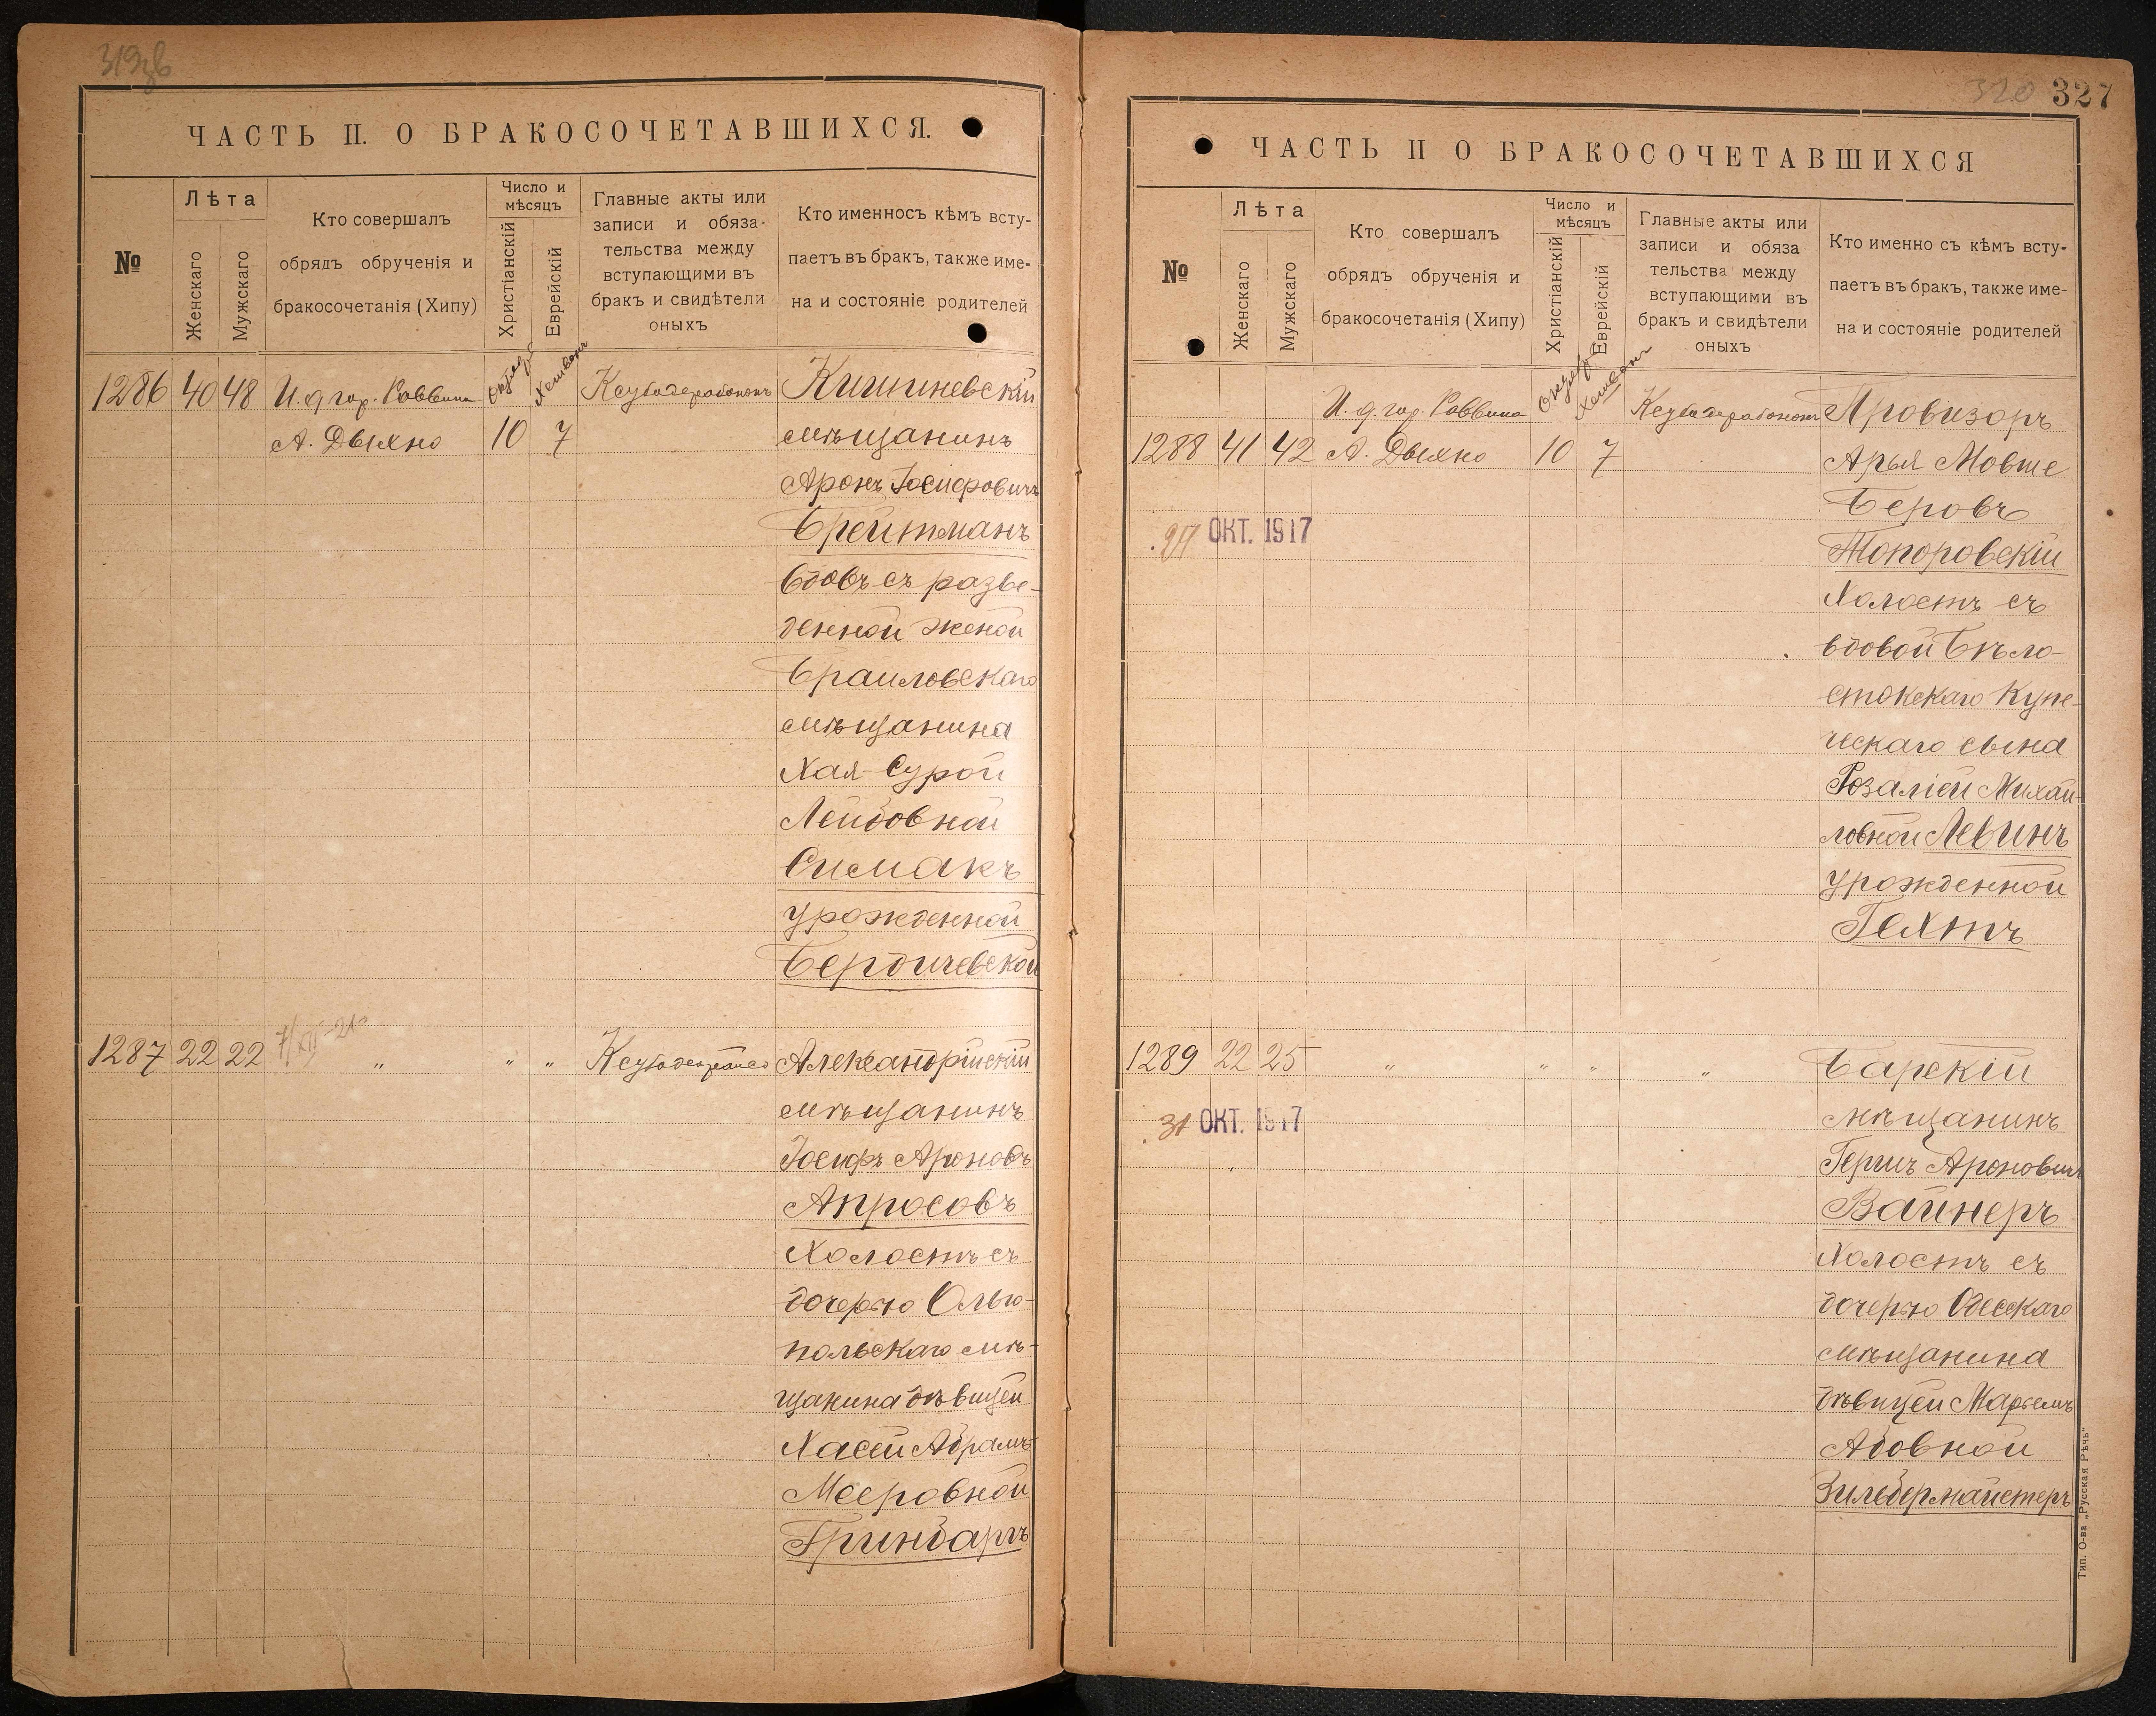 319зв
ЧАСТЬ II. О БРАКОСОЧЕТАВШИХСЯ.
№
Лѣта
Женскаго
Мужскаго
Кто совершалъ
обрядъ обрученія и
бракосочетанія (Хипу)
Число и
мѣсяцъ
Христіанскій
Еврейскій
Главные акты или
записи и обяза-
тельства между
вступающими въ
бракъ и свидѣтели
оныхъ
Кто именносъ кѣмъ всту-
паетъ въ бракъ, также име-
на и состояніе родителей
1286 40 48 И. д. гор. Раввина Хешвонъ Кишиневскій
А. Дыхно 10 7 мѣщанинъ
Аронъ Іосифовичъ
Брейтманъ
вдовъ съ разве-
денной женой
Браиловскаго
мѣщанина
Хая-Сурой
Лейбовной
Симакъ
урожденной
Бердичевской
7/XII-21
1287 22 22 „ „ „ Александрійскій
мѣщанинъ
Іосифъ Ароновъ
Апросовъ
Холостъ съ
дочерью Ольго-
польскаго мѣ-
щанина дѣвицей
Хасей Абрамъ-
Мееровной
Гриншаръ
320 327
ЧАСТЬ II О БРАКОСОЧЕТАВШИХСЯ
№
Лѣта
Женскаго
Мужскаго
Кто совершалъ
обрядъ обрученія и
бракосочетанія (Хипу)
Число и
мѣсяцъ
Христіанскій
Еврейскій
Главные акты или
записи и обяза
тельства между
вступающими въ
бракъ и свидѣтели
оныхъ
Кто именно съ кѣмъ всту-
паетъ въ бракъ, также име-
на и состояніе родителей
И. д. гор. Раввина Хешвонъ Провизоръ
1288 41 42 А. Дыхно 10 7 Арья Мовше
Беровъ
27 ОКТ. 1917
Топоровскій
Холостъ съ
вдовой Бѣло-
стокскаго Купе-
ческаго сына
Розаліей Михай-
ловной Левинъ
урожденной
Гехтъ
1289 22 25 „ „ „ „ Барскій
мѣщанинъ
31 ОКТ. 1917
Гершъ Ароновичъ
Вайнеръ
Холостъ съ
дочерью Одесскаго
мѣщанина
дѣвицей Марьемъ
Абовной
Зильбермайстеръ
Тип. О-ва „Русская Рѣчь“